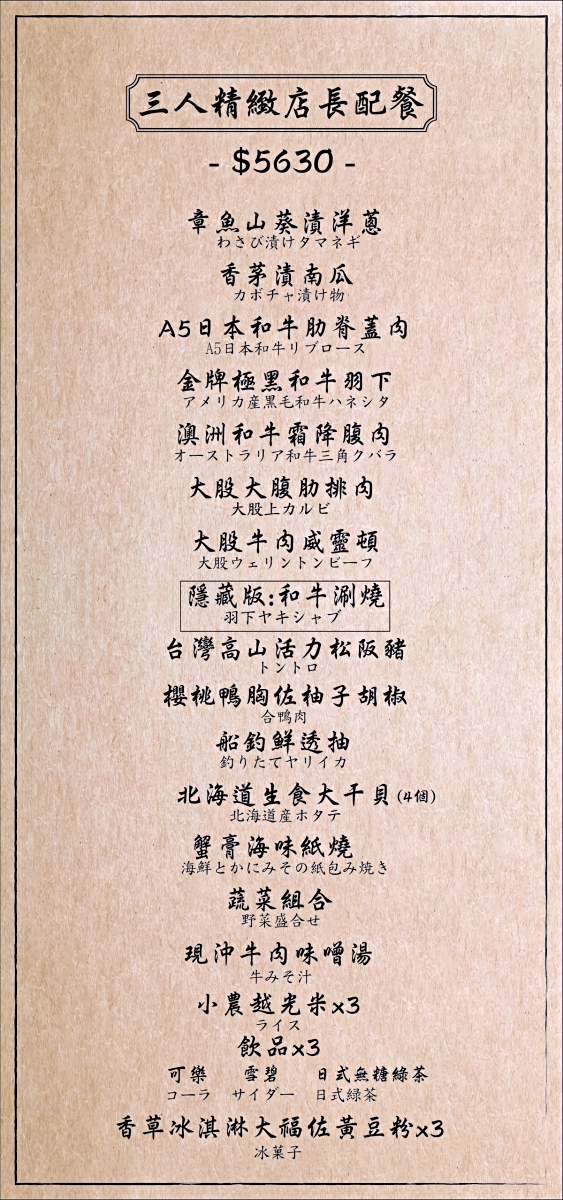 三人精緻店長配餐
- $5630 -
章魚山葵漬洋蔥
わさび漬けタマネギ
香茅漬南瓜
カボチャ漬け物
A5日本和牛肋脊蓋肉
A5日本和牛リブロース
金牌極黑和牛羽下
アメリカ産黒毛和牛ハネシタ
澳洲和牛霜降腹肉
オーストラリア和牛三角クバラ
大股大腹肋排肉
大股上カルビ
大股牛肉威靈頓
大股ウェリントンビーフ
隱藏版:和牛涮燒
羽下ヤキシャブ
台灣高山活力松阪豬
トントロ
櫻桃鴨胸佐柚子胡椒
合鴨肉
船釣鮮透抽
釣りたてヤリイカ
北海道生食大干貝(4個)
北海道産ホタテ
蟹膏海味紙燒
海鮮とかにみその紙包み焼き
蔬菜組合
野菜盛合せ
現沖牛肉味噌湯
牛みそ汁
小農越光米x3
ライス
飲品x3
可樂 雪碧 日式無糖綠茶
コーラ サイダー 日式緑茶
香草冰淇淋大福佐黃豆粉x3
冰菓子